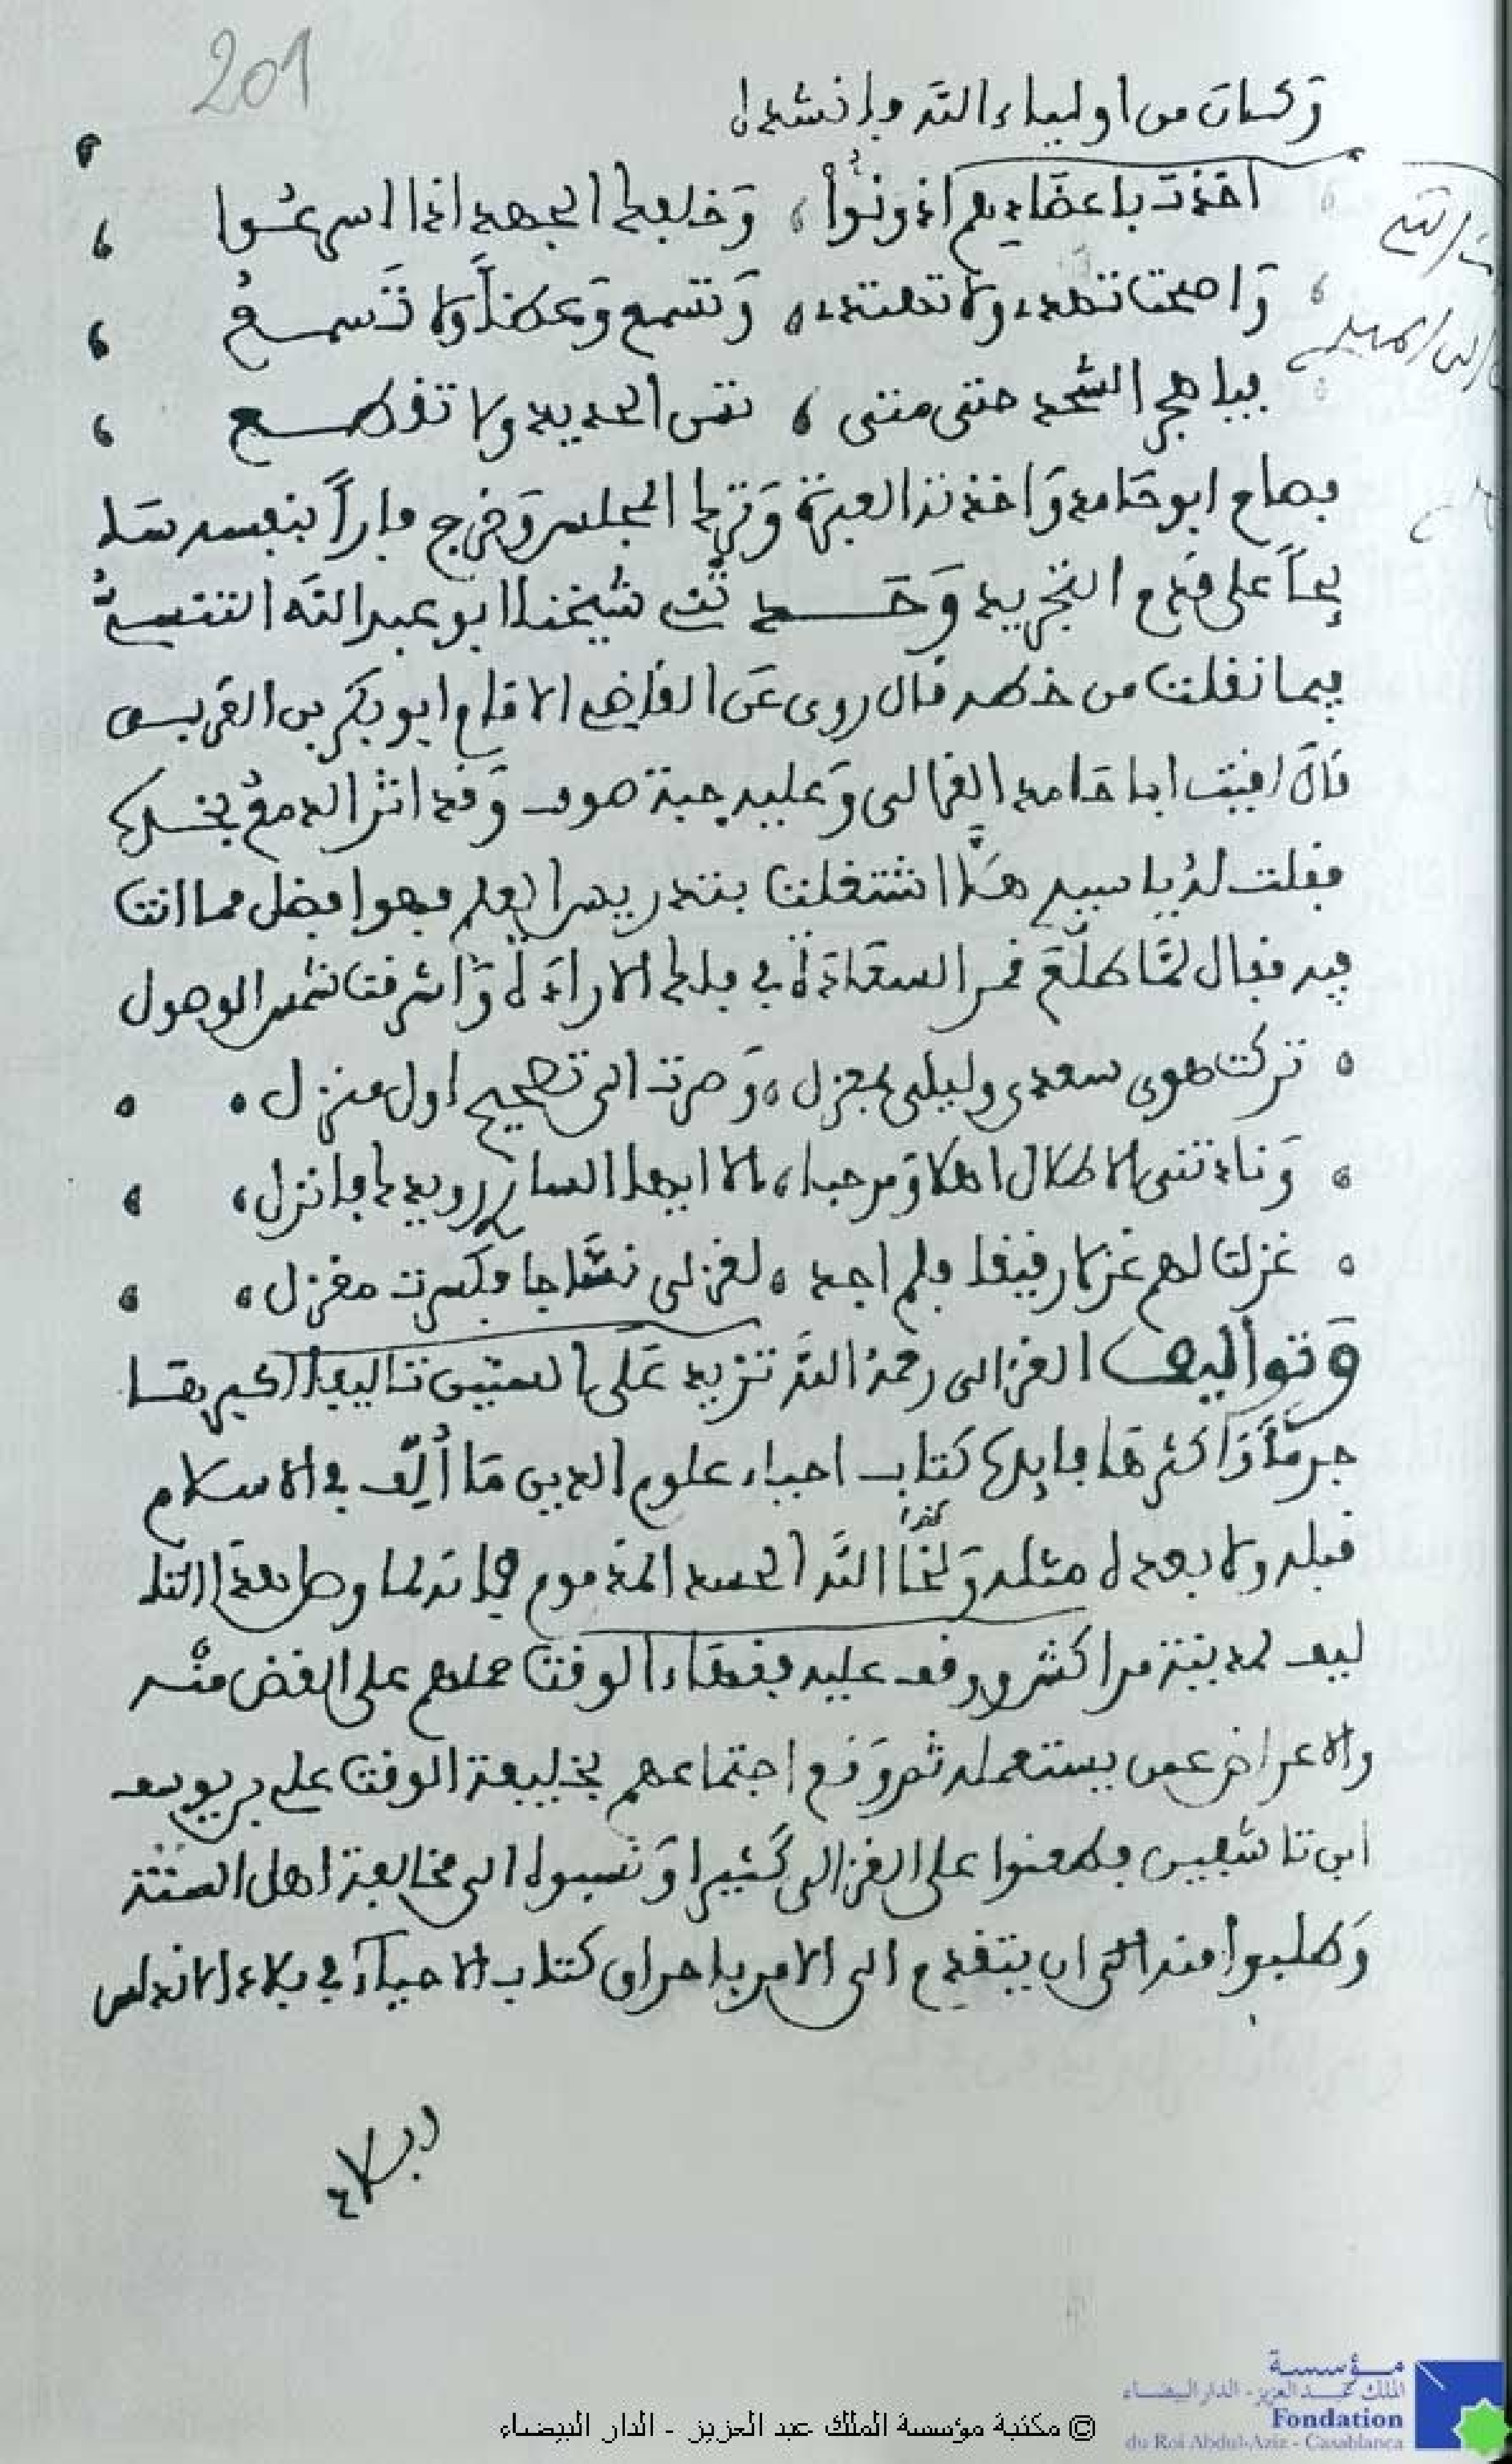 201
وكان من اولياء الله وانشده
اخذت باعضادهم اذ ونوا، وخلفك الجهد اذا اسرعوا
واصبحت تهدى ولا تهتدى، وتسمع وعظا ولا تسمع
فيا حجر الشحذ حتى متى، تسن الحديد ولا تقطع
فصاح ابو حامد واخذته العبرة وترك المجلس وخرج فارا بنفسه سا
يحا على قدم التجريد وحدثني شيخنا ابو عبد الله التنسي
فيما نقلت من خطه قال روى عن القاضي الامام ابو بكر بن العربي
قال لقيت ابا حامد الغزالي وعليه جبة صوف وقد اثر الدمع بخديه
فقلت له يا سيدي هلا اشتغلت بتدريس العلم فهو افضل مما انت
فيه فقال لما طلع قمر السعادة في فلك الارادة واشرقت شمس الوصول
تركت هوى سعدى وليلى بمعزل، وصرت الى تصحيح اول منزل
ونادتني الاطلال اهلا ومرحبا، الا ايها الساري رويدك فانزل
غزلت لهم غزلا رقيقا فلم اجد، لغزلي نساجا فكسرت مغزل
وتواليف الغزالي رحمه الله تزيد على الستين تاليفا اكبرها
جرما واكثرها فايدة كتاب احياء علوم الدين ما ألف في الاسلام
قبله ولا بعده مثله ولحا الله الحسد المذموم فانه لما وصل هذا التا
ليف لمدينة مراكش ووقف عليه فقهاء الوقت حملهم على الغض منه
والاعراض عمن يستعمله ثم وقع اجتماعهم بخليفة الوقت علي بن يوسف
ابن تاشفين فطعنوا على الغزالي كثيرا ونسبوه الى مخالفة اهل السنة
وطلبوا منه الى ان يتقدم الى الامر باحراق كتاب الاحياء في بلاد الاندلس
© مكتبة مؤسسة الملك عبد العزيز - الدار البيضاء
مؤسسة
الملك عبد العزيز - الدار البيضاء
Fondation
du Roi Abdul-Aziz - Casablanca